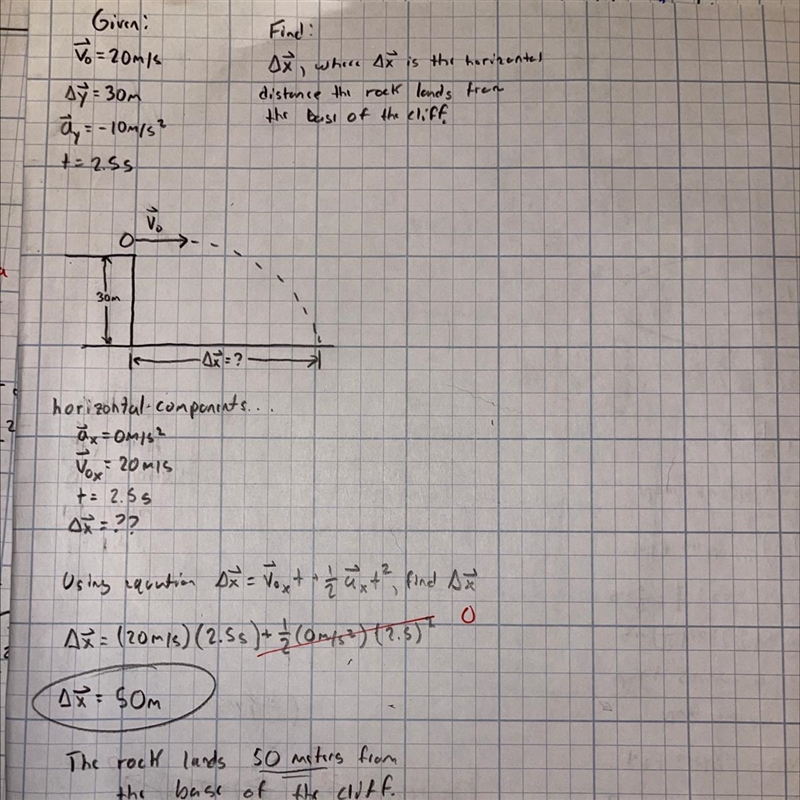 Given:
v⃗₀ = 20m/s
Δy⃗ = 30m
a⃗y = -10m/s²
t = 2.5s
Find:
Δx⃗, where Δx⃗ is the horizontal
distance the rock lands from
the base of the cliff.
v⃗₀
30m
Δx⃗ = ?
horizontal components...
a⃗x = 0m/s²
v⃗₀x = 20m/s
t = 2.5s
Δx⃗ = ??
Using equation Δx⃗ = v⃗₀x t + 1/2 a⃗x t², find Δx⃗
0
Δx⃗ = (20m/s)(2.5s) + 1/2 (0m/s²)(2.5)²
Δx⃗ = 50m
The rock lands 50 meters from
the base of the cliff.